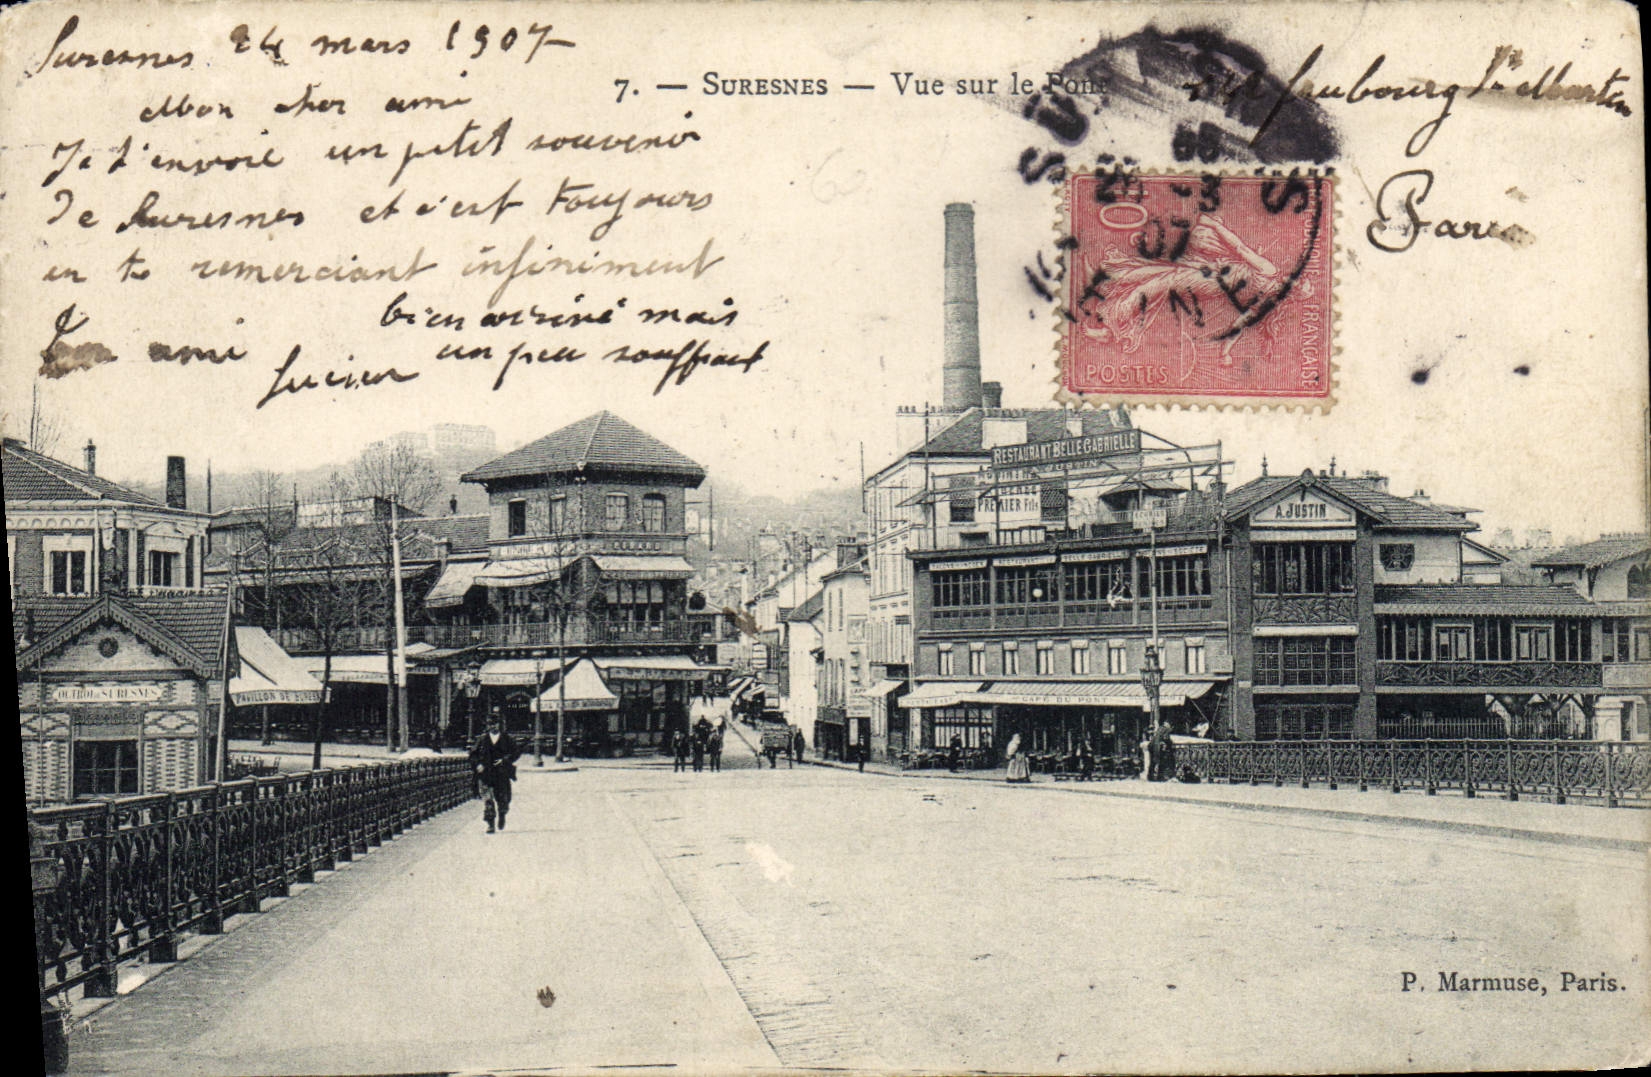 Suresnes 24 mars 1907
Mon cher ami
Je t'envoie un petit souvenir
De Suresnes et c'est toujours
en te remerciant infiniment
bien arrivé mais
un peu souffrant
Ton ami
Lucien
7. — SURESNES — Vue sur le Pont
faubourg St Martin
Paris
SURESNES
SEINE
25 -3
07
POSTES
10
REPUBLIQUE FRANÇAISE
RESTAURANT BELLE GABRIELLE
A. JUSTIN
PREMIER Fils
A. JUSTIN
RESTAURANT
BELLE GABRIELLE
CAFÉ DU PONT
OCTROI DE SURESNES
PAVILLON DE SURESNES
P. Marmuse, Paris.